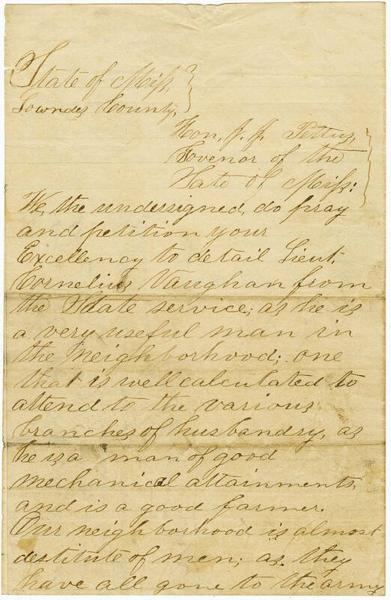 State of Miss,
Lowndes County,
Hon, J. J. Pettus,
Govenor of the
State of Miss:
We, the undersigned, do pray
and petition your
Excellency to detail Lieut.
Cornelius Vaughan from
the State service; as he is
a very useful man in
the neighborhood; one
that is well calculated to
attend to the various
branches of husbandry, as
he is a man of good
mechanical attainments,
and is a good farmer.
Our neighborhood is almost
destitute of men; as they
have all gone to the army